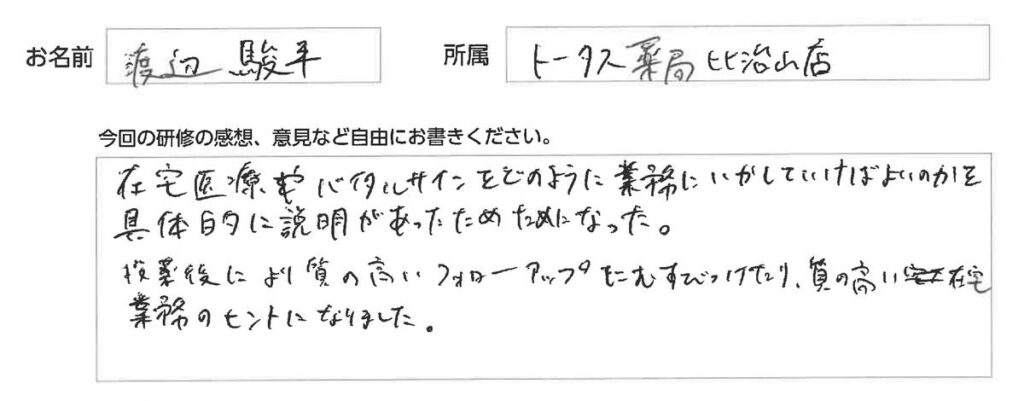 お名前 渡辺 駿平 所属 トータス薬局 比治山店
今回の研修の感想、意見など自由にお書きください。
在宅医療やバイタルサインをどのように業務にいかしていけばよいのかを
具体的に説明があったためためになった。
投薬後により質の高いフォローアップをにむすびつけたり、質の高い在宅
業務のヒントになりました。